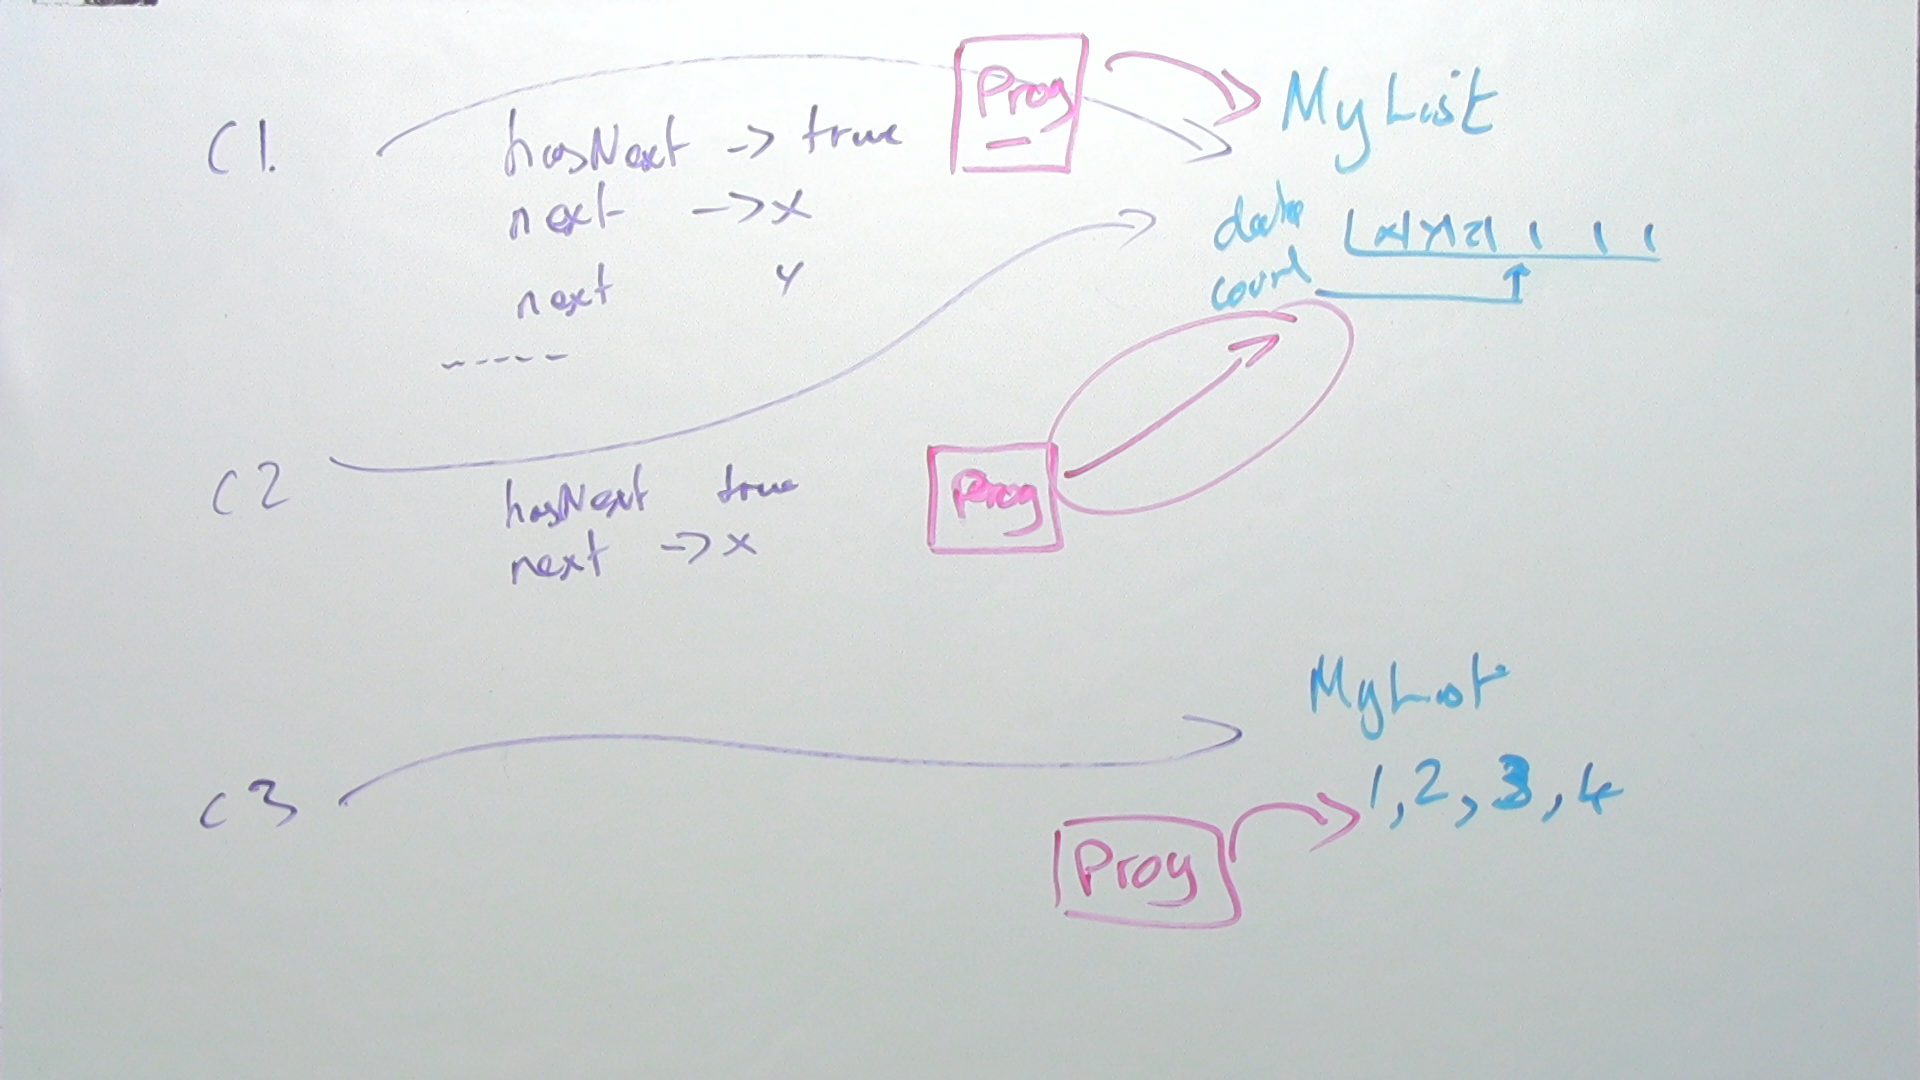 C1.
hasNext -> true
next -> x
next y
-----
Prog
MyList
data x y z
count
C2
hasNext true
next -> x
Prog
C3
MyList
1, 2, 3, 4
Prog